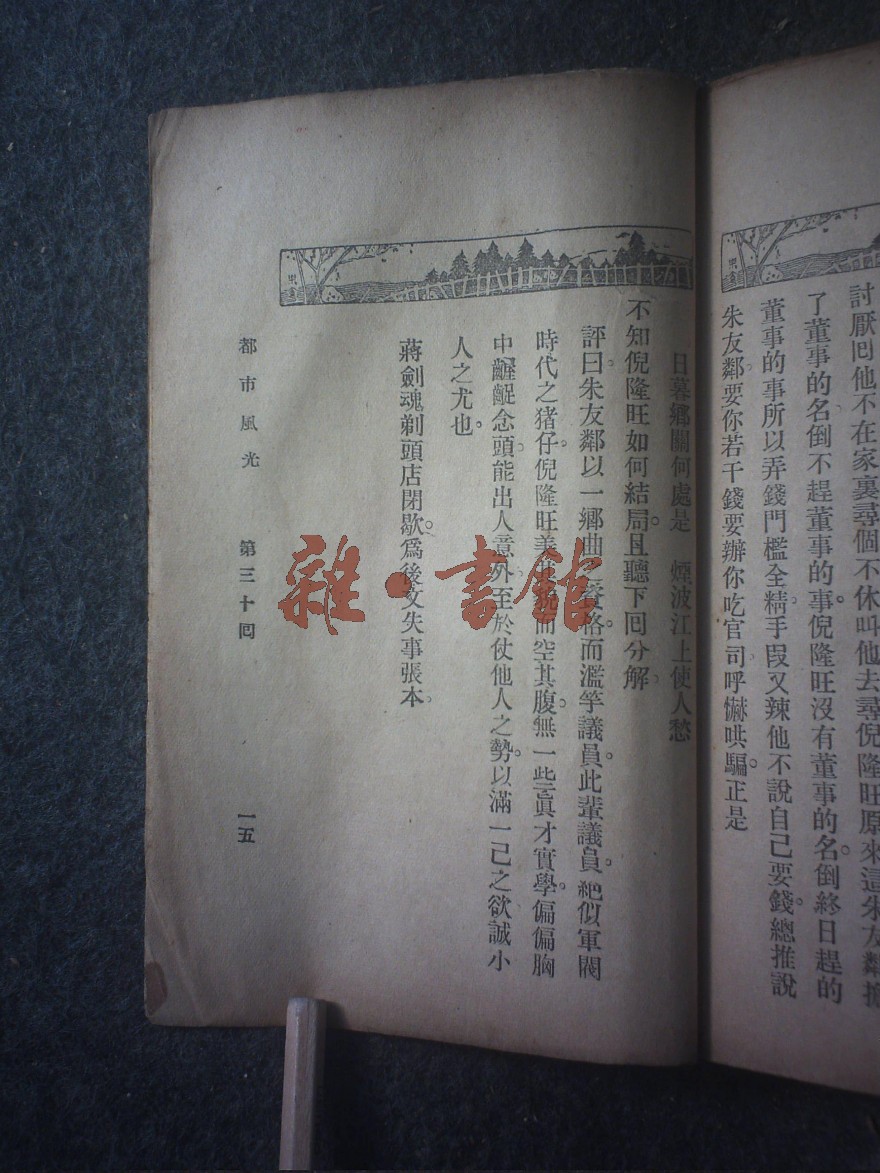 討厭回他不在家裏尋個不休叫他去尋倪隆旺原來這朱友鄰擔
了董事的名倒不趕董事的事倪隆旺沒有董事的名倒終日趕的
董事的事所以弄錢門檻全精手段又辣他不說自己要錢總推說
朱友鄰要你若干錢要辦你吃官司呼嚇哄騙正是
日暮鄉關何處是　煙波江上使人愁
不知倪隆旺如何結局且聽下回分解
評曰朱友鄰以一鄉曲資格而濫竽議員此輩議員絕似軍閥
時代之猪仔倪隆旺美其貌而空其腹無一些眞才實學偏偏胸
中齷齪念頭能出人意外至於仗他人之勢以滿一己之欲誠小
人之尤也
蔣劍魂剃頭店閉歇爲後文失事張本
都市風光　第三十回　一五
雜·書館